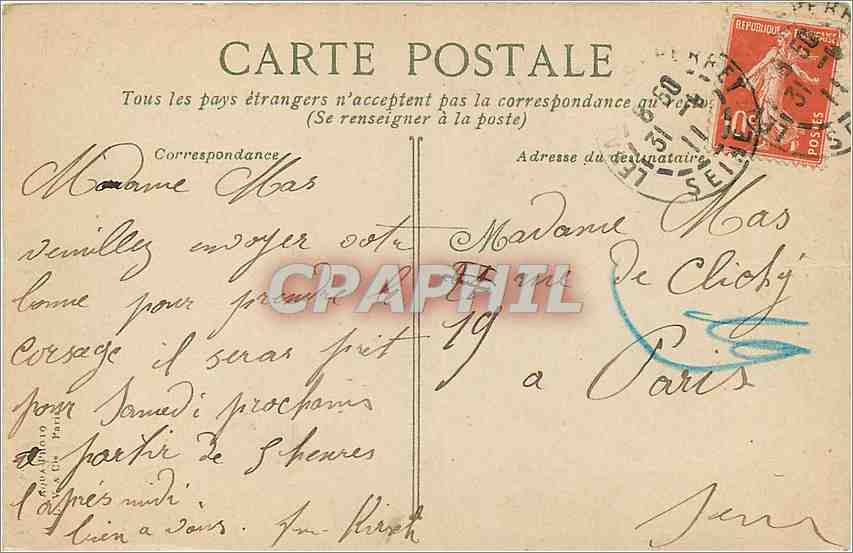 CARTE POSTALE
Tous les pays étrangers n'acceptent pas la correspondance au
(Se renseigner à la poste)
Correspondance
Adresse du destinataire
REPUBLIQUE FRANÇAISE
10c
POSTES
LE PERREY
SEINE
6 50
31
11
Madame Mas
veuillez envoyer votre
bonne pour prendre le
corsage il seras prêt
pour Samedi prochains
a partir de 5 heures
l'après midi.
bien a vous. Kirsch
Madame Mas
rue de Clichy
19
a Paris
Seine
AQUA PHOTO
Paris
CPAPHIL